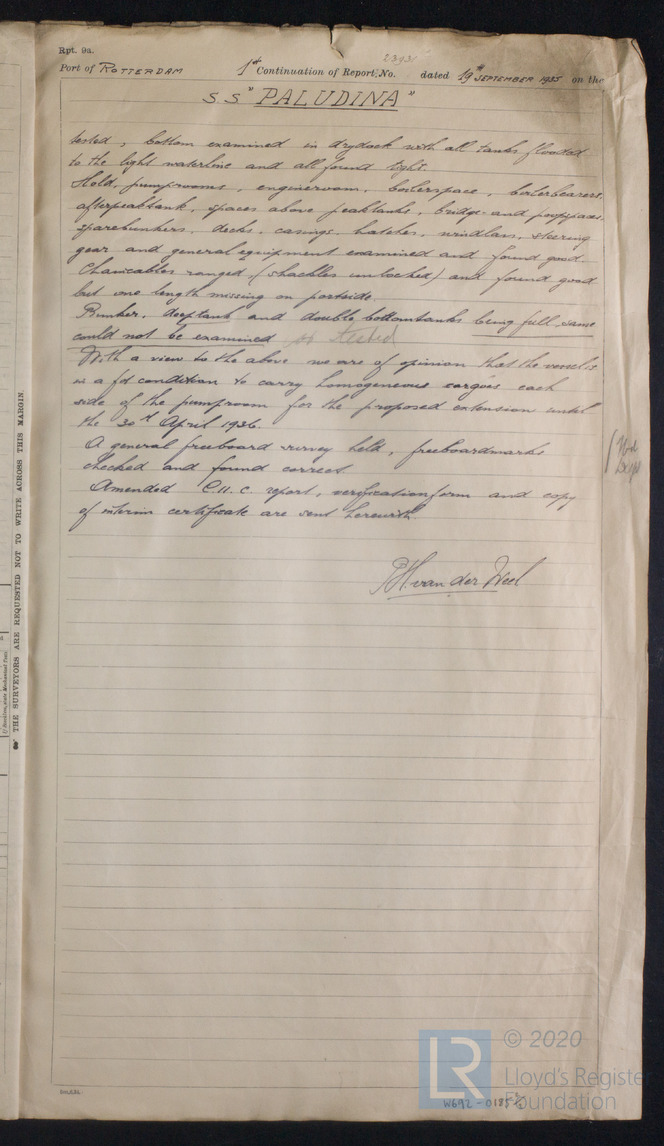 Rpt. 9a.
Port of ROTTERDAM 1st Continuation of Report, No. dated 19th SEPTEMBER 1935 on the
S S "PALUDINA"
tested, bottom examined in drydock with all tanks flooded
to the light waterline and all found tight.
Hold, pumprooms, engineroom, boilerspace, boilerbearers,
afterpeaktank, spaces above peaktanks, bridge- and poopspaces,
sparebunkers, decks, casings, hatches, windlass, steering
gear and general equipment examined and found good.
Chaincables ranged (shackles unlocked) and found good
but one length missing on portside.
Bunker, deeptank and double bottomtanks being full same
could not be examined or tested
With a view to the above we are of opinion that the vessel is
in a fit condition to carry homogeneous cargoes each
side of the pumproom for the proposed extension until
the 30th April 1936.
A general freeboard survey held, freeboardmarks
checked and found correct
Amended C.11.c report, verificationform and copy
of interim certificate are sent herewith.
van der Weel
THE SURVEYORS ARE REQUESTED NOT TO WRITE ACROSS THIS MARGIN.
LR
© 2020
Lloyd's Register
Foundation
W692-0185